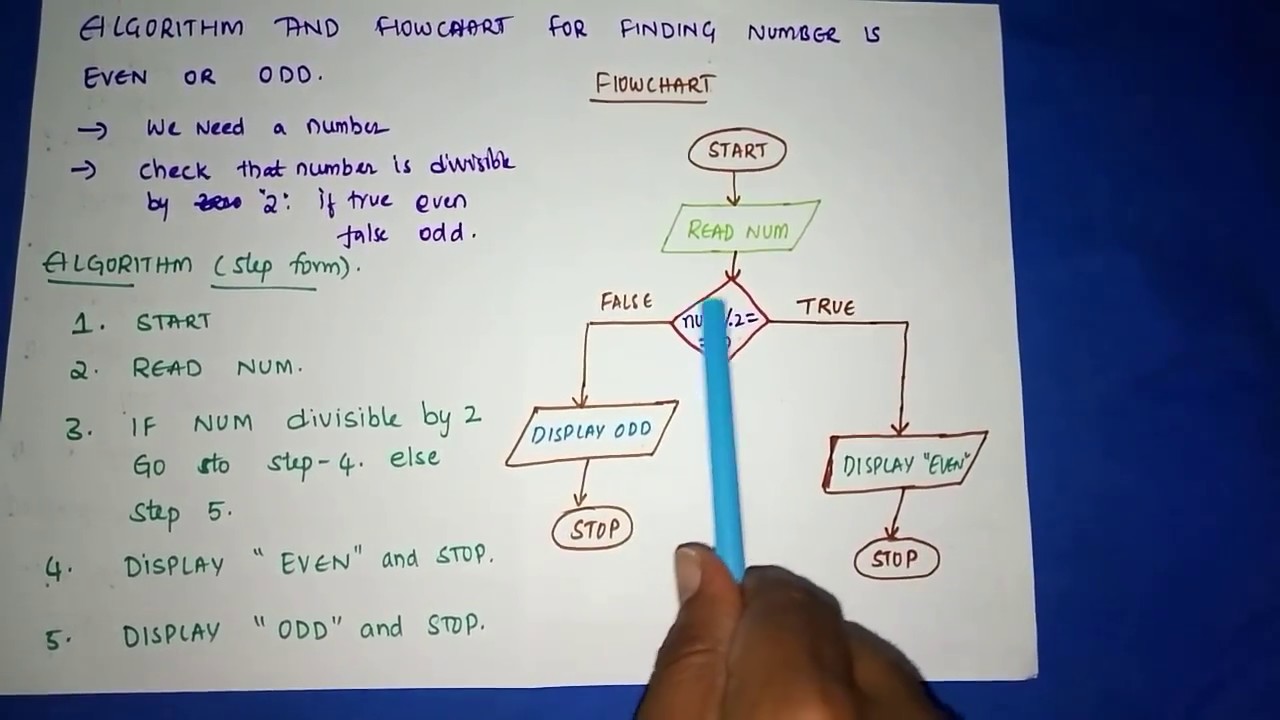 ALGORITHM AND FlOWCHART FOR FINDING NUMBER IS
EVEN OR ODD.
→ We Need a number
→ check that number is divisible
by "2": if true even
false odd.
ALGORITHM (step form).
1. START
2. READ NUM.
3. IF NUM divisible by 2
Go to step-4. else
step 5.
4. DiSPLAY "EVEN" and STOP.
5. DISPLAY "ODD" and STOP.
FlOWCHART
START
READ NUM
FALSE
TRUE
DISPLAY ODD
STOP
DISPLAY "EVEN"
STOP